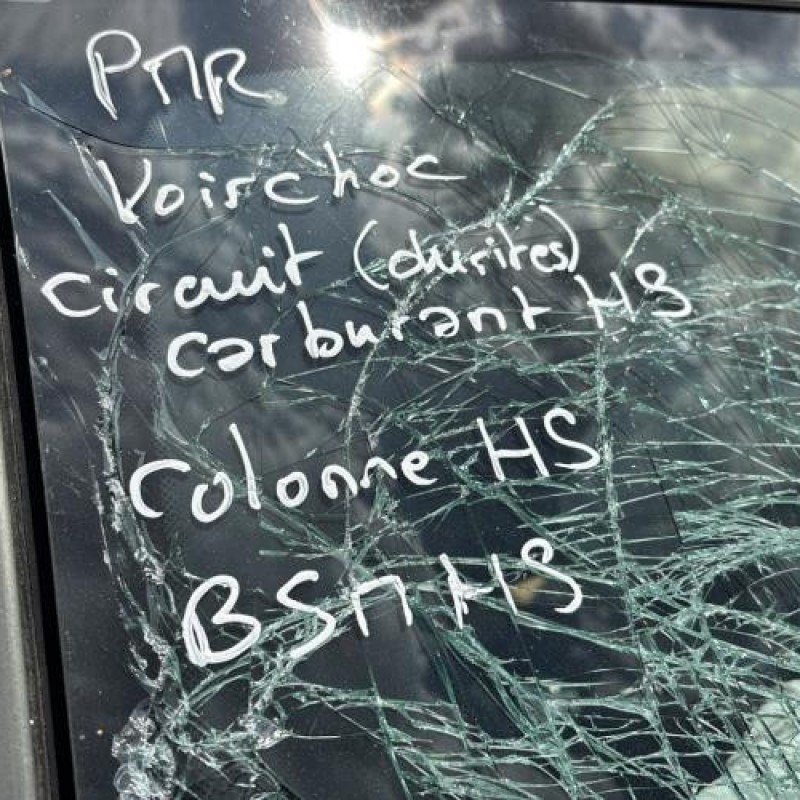 PMR
Voir choc
circuit (durites)
carburant HS
Colonne HS
BSM HS